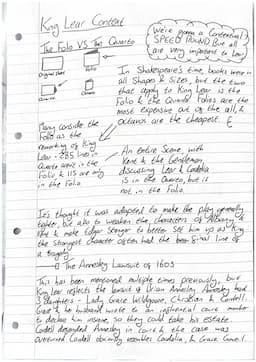 King Lear Context
We're gonna a Contextual
SPEED ROUND but all
are very important to Lear
The Folio VS The Quarto
Original Sheet
Folio
Quarto
Octavo
In Shakespeare's time, books were in
all Shapes & Sizes, but the two
that apply to King Lear is the
Folio & the Quarto. Folios are the
most expensive out of the all, &
octavos are the cheapest.
Many consider the
Folio as the
reworking of King
Lear - 285 lines in
Quarto aren't in the
Folio & 115 are only
in the Folio
An Entire Scene, with
Kent & the Gentleman,
discussing Lear & Cordelia
is in the Quarto, but is
not in the Folio.
It's thought it was adapted to make the play generally
tighter, but also to weaken the characters of Albany &
Kent & make Edgar Stronger to better set him up as King
the Strongest character often had the final line of
a tragedy
The Annesley Lawsuit of 1603
This has been mentioned multiple times previously, but
King Lear reflects the lawsuit of Brian Annesley. Annesley had
3 daughters - Lady Grace Wildgoose, Christian & Cordell.
Grace & her husband wrote to an influential court member
to declare him insane, so they could take his estate.
Cordell defended Annesley in court & the case was
overturned. Cordell obviously resembles Cordelia, & Grace Goneril